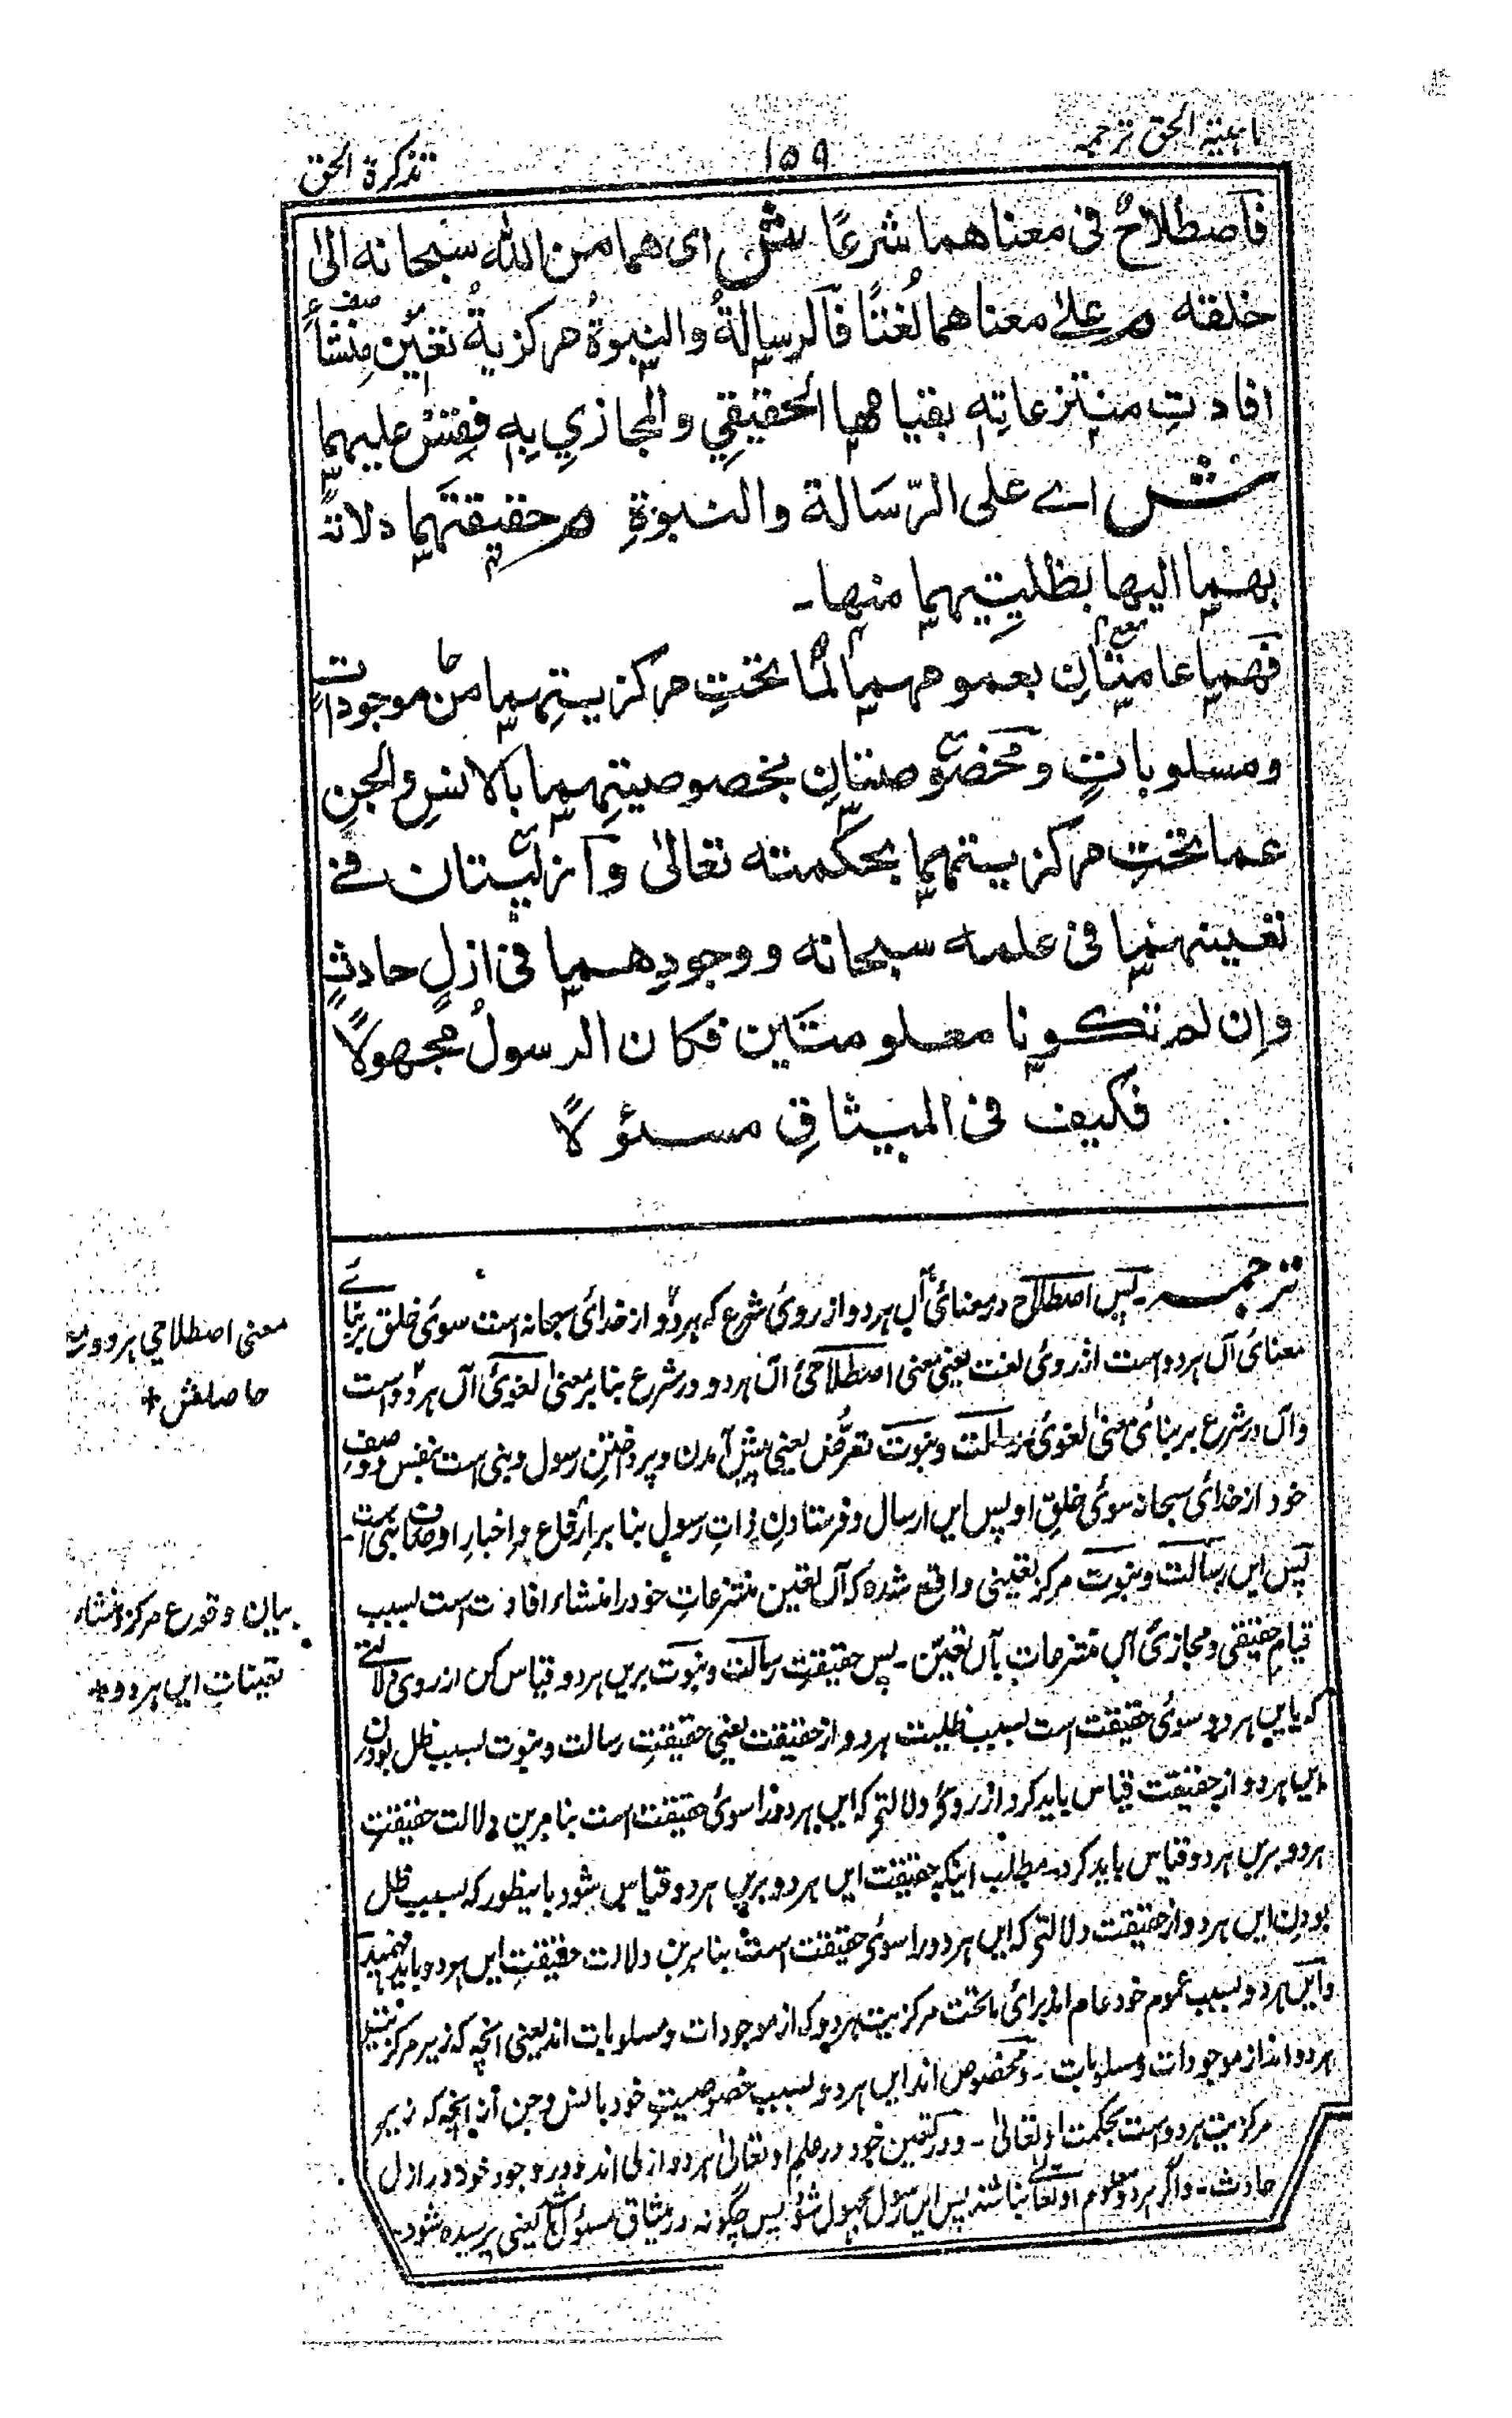 ماهية الحق ترجمه
۱۵۹
تذكرة الحق
فاصطلاحٌ فى معناهما شرعًا ش اى هما من الله سبحانه الىٰ
خلقه م علىٰ معناهما لُغتًا فالرسالةُ والنبوةُ مركزيةُ تعيّن منشأ
افادتِ منتزعاتِهٖ بقيامها الحقيقيِ والمجازيِ بِهٖ فقِسْ عليهما
ش اے على الرّسَالة والنبوةِ م حقيقتَهما دلالةً
بهما اليها بظليتِهما منها۔
فهما عامتانِ بعمومهما لما تحتِ مركزيتِهما من موجوداتٍ
ومسلوباتٍ ومخصوصتانِ بخصوصيتِهما بالانسِ والجنِ
عما تحتِ مركزيتهما بحكمته تعالىٰ وازليتان فے
تعينهما فى علمه سبحانه ووجودِهما فى ازلٍ حادثٍ
وإن لم تكونا معلومتين فكان الرسولُ مجهولاً
فكيف فى الميثاقِ مسئولاً
ترجمہ۔ پس اصطلاح در معنائ آں ہر دو از روئ شرع کہ ہر دو از خدائ سبحانہ است سوئ خلق بر بنائے
معنائ آں ہر دو است از روئ لغت یعنی معنی اصطلاحئ آں ہر دو در شرع بنا بر معنیٰ لغوئ آں ہر دو است
وآں در شرع بر بنائ معنیٰ لغوئ رسالت ونبوت تعرّض یعنی پیش آمدن وپرداختن رسول ونبی است بنفس وصفِ
خود از خدائ سبحانہ سوئ خلقِ او پس ایں ارسال وفرستادنِ ذاتِ رسول بنا بر ارقاع و اخبارِ اوصاف نبی است۔
پس ایں رسالت ونبوت مرکز تعینی واقع شدہ کہ آں تعین منتزعاتِ خود را منشاء افادت است بسبب
قیام حقیقی ومجازئ آں منتزعات بآں تعیّن۔ پس حقیقتِ رسالت ونبوت بریں ہر دو قیاس کن از روی دلالتے
کہ بایں ہر دو سوئ حقیقت است بسبب ظلیت ہر دو از حقیقت یعنی حقیقتِ رسالت ونبوت بسبب ظل بودن
ایں ہر دو از حقیقت قیاس باید کرد از روئ دلالتی کہ ایں ہر دو را سوئ حقیقت است بنا برین دلالت حقیقتِ
ہر دو بریں ہر دو قیاس باید کرد۔ مطلب اینکہ حقیقت ایں ہر دو بریں ہر دو قیاس شود باینطور کہ بسبب ظل
بودن ایں ہر دو از حقیقت دلالتی کہ ایں ہر دو را سوئ حقیقت است بنا برین دلالت حقیقتِ ایں ہر دو باید فہمید
وایں ہر دو بسبب عموم خود عام اند برائ ماتحت مرکزیت ہر دو کہ از موجودات ومسلوبات اند یعنی انچہ کہ زیر مرکزیت
ہر دو اند از موجودات ومسلوبات۔ ومخصوص اند ایں ہر دو بسبب خصوصیتِ خود بانس وجن از انچہ کہ زیر
مرکزیت ہر دو است بحکمت او تعالیٰ۔ ودر تعین خود در علم او تعالیٰ ہر دو ازلی اند ودر وجود خود در ازل
حادث۔ واگر ہر دو معلوم او تعالےٰ نباشند پس ایں رسول مجہول شود پس چگونہ در میثاق مسئول باشد یعنی پرسیدہ شود۔
معنی اصطلاحی ہر دو مع
حاصلش +
بیان وقوع مرکز و منشاء
تعینات ایں ہر دو +